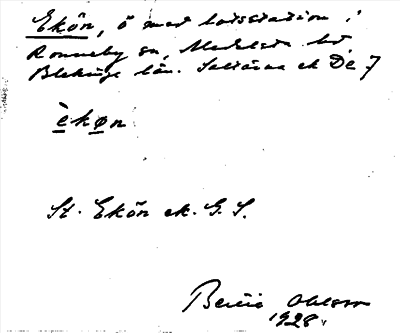 Ekön, ö med lotsstation i
Ronneby sn, Medelsta hd,
Blekinge län. Saltärna ek De 7
èkøn
St. Ekön ek. G. S.
Bertil Ohlsson
1928.